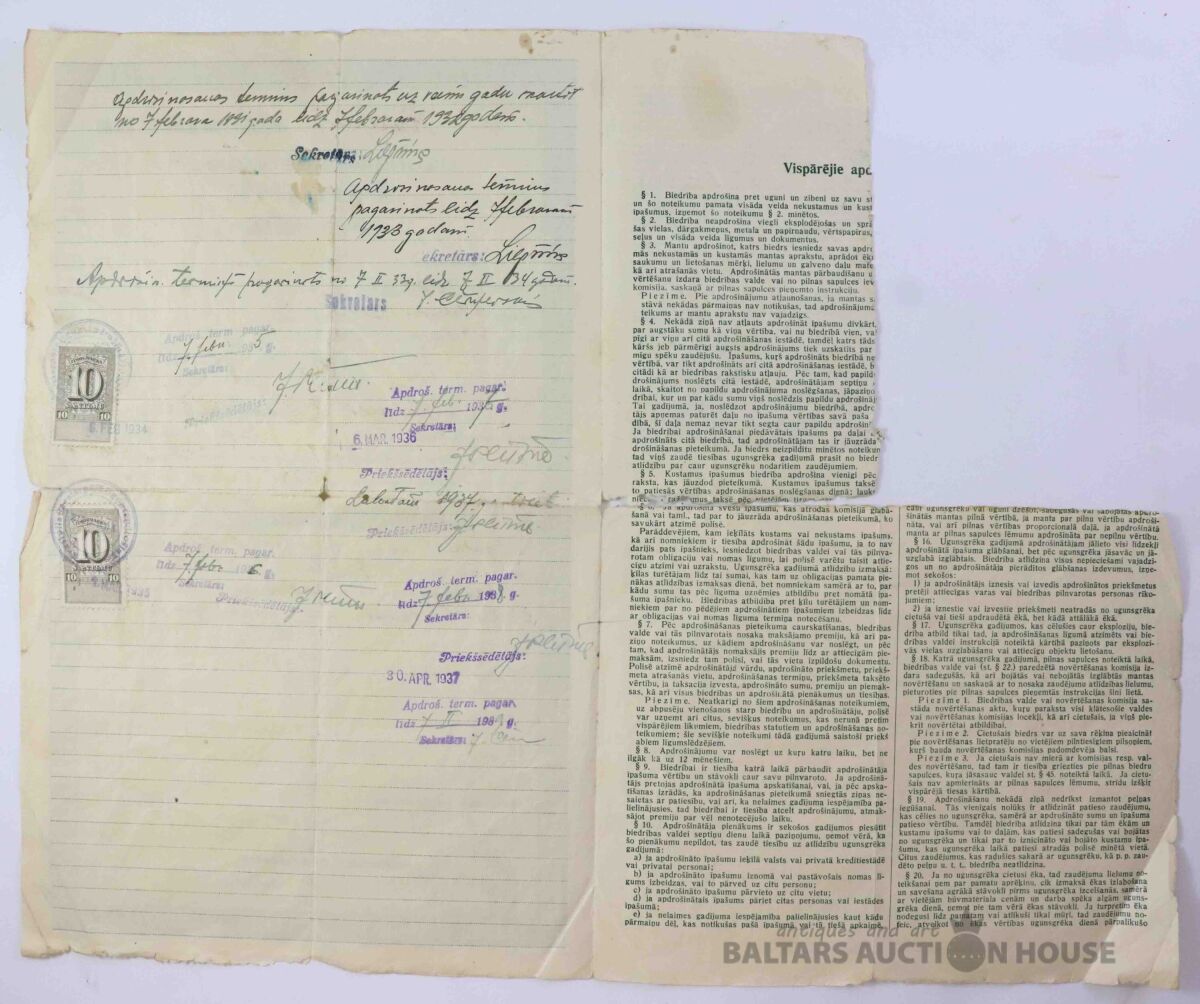 Apdrošinošanas termiņš pagarinots uz vienu gadu
no 7 februara 1931 gada lidz 7 februaram 1932 godam.
Sekretars: Liepiņš
Apdrošinošanas termiņš
pagarinots lidz 7 februaram
1933 godam.
ekretārs: Liepiņš
Apdrošin. termiņš pagarinots no 7 II 33g. lidz 7 II 934 godam.
Sekretars
Apdroš. term. pagar.
līdz 7. febr. 1935 g.
Sekretārs:
Priekšsēdētājs:
10
10 10
6 FEB 1934
Apdroš. term. pagar.
līdz 7 feb. 1937 g.
Sekretārs:
6. MAR. 1936
Priekšsēdētājs:
1937
Priekšsēdētājs:
10
10 10
1935
Apdroš. term. pagar.
līdz 7. febr. 1936. g.
Sekretārs:
Priekšsēdētājs:
Apdroš. term. pagar.
līdz 7. febr. 1938 g.
Sekretārs:
Priekšsēdētājs:
30. APR. 1937
Apdroš. term. pagar.
līdz 7 II 1939 g.
Sekretārs:
Vispārējie apd
§ 1. Biedrība apdrošina pret uguni un zibeni uz savu st
un šo noteikumu pamata visāda veida nekustamus un kust
īpašumus, izņemot šo noteikumu § 2. minētos.
§ 2. Biedrība neapdrošina viegli eksplodējošas un sprā
šas vielas, dārgakmeņus, metala un papirnaudu, vērtspapirus,
seļus un visāda veida līgumus un dokumentus.
§ 3. Mantu apdrošinot, katrs biedrs iesniedz savas apdro
mās nekustamās un kustamās mantas aprakstu, aprādot ēk
saukumu un lietošanas mērķi, lielumu un galveno daļu mate
kā arī atrašanās vietu. Apdrošinātās mantas pārbaudīšanu u
vērtēšanu izdara biedrības valde vai no pilnas sapulces iev
komisija, saskaņā ar pilnas sapulces pieņemto instrukciju.
Piezīme. Pie apdrošinājumu atjaunošanas, ja mantas s
stāvā nekādas pārmaiņas nav notikušas, tad apdrošinājumu
teikums ar mantu aprakstu nav vajadzīgs.
§ 4. Nekādā ziņā nav atļauts apdrošināt īpašumu divkārt,
par augstāku sumu kā viņa vērtība, vai nu biedrībā vien, va
pīgi ar viņu arī citā apdrošināšanas iestādē, tamdēļ katrs tāds
kāršs jeb pārmērīgi augsts apdrošinājums tiek uzskatīts par
mīgu spēku zaudējušu. Īpašums, kurš apdrošināts biedrībā ne
vērtībā, var tikt apdrošināts arī citā apdrošināšanas iestādē, b
citādi kā ar biedrības rakstisku atļauju. Pēc tam, kad papild
drošinājums noslēgts citā iestādē, apdrošinātājam septiņu
laikā, skaitot no papildu apdrošinājuma noslēgšanas, jāpaziņo
drībai, kur un par kādu sumu viņš noslēdzis papildu apdrošināj
Tai gadījumā, ja, noslēdzot apdrošinājumu biedrībā, apdro
tājs apņemas paturēt daļu no īpašuma vērtības savā paša
dībā, šī daļa nemaz nevar tikt segta caur papildu apdrošin
Ja biedrībai apdrošināšanai piedāvātais īpašums pa daļai
apdrošināts citā biedrībā, tad apdrošinātājam tas ir jāuzrāda
apdrošināšanas pieteikumā. Ja biedrs neizpildītu minētos noteikum
tad viņš zaudē tiesības ugunsgrēka gadījumā prasīt no biedr
atlīdzību par caur ugunsgrēku nodarītiem zaudējumiem.
§ 5. Kustamus īpašumus biedrība apdrošina vienīgi pēc
raksta, kas jāuzdod pieteikumā. Kustamus īpašumus taksē
to patiesās vērtības apdrošināšanas noslēgšanas dienā; lauk
§ 6. Ja apdrošina svešu īpašumu, kas atrodas komisijā glabā-
šanā vai taml., tad par to jāuzrāda apdrošināšanas pieteikumā, ko
savukārt atzīmē polisē.
Parāddevējam, kam ieķīlāts kustams vai nekustams īpašums,
kā arī nomniekiem ir tiesība apdrošināt šādu īpašumu, ja to nav
darījis pats īpašnieks, iesniedzot biedrības valdei vai tās pilnva-
rotam obligaciju vai nomas līgumu, lai polisē varētu taisīt attie-
cīgu atzīmi vai uzrakstu. Ugunsgrēka gadījumā izmaksā atlīdzību:
ķīlas turētājam līdz tai sumai, kas tam uz obligacijas pamata pie-
nākas atlīdzības izmaksas dienā, bet nomniekam samērā ar to, par
kādu sumu tas pēc līguma uzņēmies atbildību pret nomātā īpa-
šuma īpašnieku. Biedrības atbildība pret ķīlu turētājiem un nom-
niekiem par no pēdējiem apdrošinātiem īpašumiem izbeidzas līdz
ar obligacijas vai nomas līguma termiņa notecēšanu.
§ 7. Pēc apdrošināšanas pieteikuma caurskatīšanas, biedrības
valde vai tās pilnvarotais nosaka maksājamo premiju, kā arī pa-
ziņo noteikumus, uz kādiem apdrošinājumu var noslēgt, un pēc
tam, kad apdrošinātājs nomaksājis premiju līdz ar attiecīgām pie-
maksām, izsniedz tam polisi, vai tās vietu izpildošu dokumentu.
Polisē atzīmē apdrošinātāja vārdu, apdrošināto priekšmetu, priekš-
meta atrašanās vietu, apdrošināšanas termiņu, priekšmeta taksēto
vērtību, ja taksacija izvesta, apdrošināto sumu, premiju un piemak-
sas, kā arī visus biedrības un apdrošinātā pienākumus un tiesības.
Piezīme. Neatkarīgi no šiem apdrošināšanas noteikumiem,
uz abpusēju vienošanos starp biedrību un apdrošinātāju, polisē
var uzņemt arī citus, sevišķus noteikumus, kas nerunā pretim
vispārējiem likumiem, biedrības statutiem un apdrošināšanas no-
teikumiem; šie sevišķie noteikumi tādā gadījumā saistoši priekš
abiem līgumslēdzējiem.
§ 8. Apdrošinājumu var noslēgt uz kuŗu katru laiku, bet ne
ilgāk kā uz 12 mēnešiem.
§ 9. Biedrībai ir tiesība katrā laikā pārbaudīt apdrošinātāja
īpašuma vērtību un stāvokli caur savu pilnvaroto. Ja apdrošinā-
tājs pretojas apdrošinātā īpašuma apskatīšanai, vai, ja pēc apska-
tīšanas izrādās, ka apdrošināšanas pieteikumā sniegtās ziņas ne-
saietas ar patiesību, vai arī, ka nelaimes gadījuma iespējamība pa-
lielinājusies, tad biedrībai ir tiesība atcelt apdrošinājumu, atmak-
sājot premiju par vēl nenotecējušo laiku.
§ 10. Apdrošinātāja pienākums ir sekošos gadījumos piesūtīt
biedrības valdei septiņu dienu laikā paziņojumu, ņemot vērā, ka
šo pienākumu nepildot, tas zaudē tiesību uz atlīdzību ugunsgrēka
gadījumā:
a) ja apdrošināto īpašumu ieķīlā valsts vai privatā kreditiestādē
vai privatai personai;
b) ja apdrošināto īpašumu iznomā vai pastāvošais nomas lī-
gums izbeidzas, vai to pārved uz citu personu;
c) ja apdrošināto īpašumu pārvieto uz citu vietu;
d) ja apdrošinātais īpašums pāriet citas personas vai iestādes
īpašumā;
e) ja nelaimes gadījuma iespējamība palielinājusies kaut kādu
pārmaiņu dēļ, kas notikušas pašā īpašumā vai tā tiešā apkaimē,
caur ugunsgrēku vai uguni dzēšot, sabojātas vai sabojātas apdro-
šinātās mantas pilnā vērtībā, ja manta par pilnu vērtību apdroši-
nāta, vai arī pilnās vērtības proporcionālā daļā, ja apdrošinātā
manta ar pilnas sapulces piekrišanu apdrošināta par nepilnu vērtību.
§ 16. Ugunsgrēka gadījumā apdrošinātājam jālieto visi līdzekļi
apdrošinātā īpašuma glābšanai, bet pēc ugunsgrēka jāsavāc un jā-
uzglabā izglābtais. Biedrība atlīdzina visus nepieciešami vajadzī-
gos un no apdrošinātāja pierādītos glābšanas izdevumus, izņe-
mot sekošos:
1) ja apdrošinātājs iznesis vai izvedis apdrošinātos priekšmetus
pretēji attiecīgas varas vai biedrības pilnvarotas personas rīko-
jumiem;
2) ja iznestie vai izvestie priekšmeti neatradās no ugunsgrēka
cietušā vai tieši apdraudētā ēkā, bet kādā attālākā ēkā.
§ 17. Ugunsgrēka gadījumos, kas cēlušies caur eksploziju, biedrība
atbild tikai tad, ja apdrošinājuma līgumā atzīmēts vai biedrības
valdei instrukcijas kārtībā paziņots par eksplozi-
jas vielas uzglabāšanu vai attiecīgu objektu lietošanu.
§ 18. Katrā ugunsgrēka gadījumā, pilnas sapulces noteiktā laikā,
biedrības valde vai (st. § 22.) paredzētā novērtēšanas komisija iz-
dara sadegušās, kā arī bojātās vai nebojātās izglābtās mantas
novērtēšanu un saskaņā ar to nosaka zaudējumu atlīdzības lielumu,
pieturoties pie pilnas sapulces pieņemtās instrukcijas šinī lietā.
Piezīme 1. Biedrības valde vai novērtēšanas komisija sa-
stāda novērtēšanas aktu, kuŗu paraksta visi klātesošie valdes
vai novērtēšanas komisijas locekļi, kā arī cietušais, ja viņš pie-
krīt novērtētai atbildībai.
Piezīme 2. Cietušais biedrs var uz sava rēķina pieaicināt
pie novērtēšanas lietpratēju no vietējiem pilntiesīgiem pilsoņiem,
kuŗš bauda novērtēšanas komisijā padomdevēja balsi.
Piezīme 3. Ja cietušais nav mierā ar komisijas resp. val-
des novērtēšanu, tad tam ir tiesība griezties pie pilnas biedru
sapulces, kuŗa jāsasauc valdei st. § 45. noteiktā laikā. Ja cietu-
šais nav apmierināts ar pilnas sapulces lēmumu, strīdu izšķir
vispārējā tiesas kārtībā.
§ 19. Apdrošināšanu nekādā ziņā nedrīkst izmantot peļņas
iegūšanai. Tās vienīgais nolūks ir atlīdzināt patieso zaudējumu,
kas cēlies no ugunsgrēka, samērā ar apdrošināto sumu un īpašuma
patieso vērtību. Tamdēļ biedrība atlīdzina tikai par tām ēkām un
kustamu īpašumu vai to daļām, kas patiesi sadegušas vai bojātas
no ugunsgrēka un tikai par to iznīcināto vai bojāto kustamu īpa-
šumu, kas ugunsgrēka laikā patiesi atradās polisē minētā vietā.
Citus zaudējumus, kas radušies sakarā ar ugunsgrēku, kā p. p. zau-
dēto peļņu u. t. t., biedrība neatlīdzina.
§ 20. Ja no uguns cietusi ēka, tad zaudējuma lielumu no-
teikšanai ņem par pamatu aprēķinu, cik izmaksā ēkas izlabošana
un savešana agrākā stāvoklī pirms ugunsgrēka izcelšanās, samērā
ar vietējām būvmateriala cenām un darba spēka algām uguns-
grēka dienā, ņemot pie tam vērā ēkas stāvokli. Ja turpretim ēka
nodegusi līdz pamatam vai atlikuši tikai mūri, tad zaudējumu no-
teic, atvelkot no ēkas vērtības ugunsgrēka dienā pārpalikušo
antiques and art
BALTARS AUCTION HOUSE